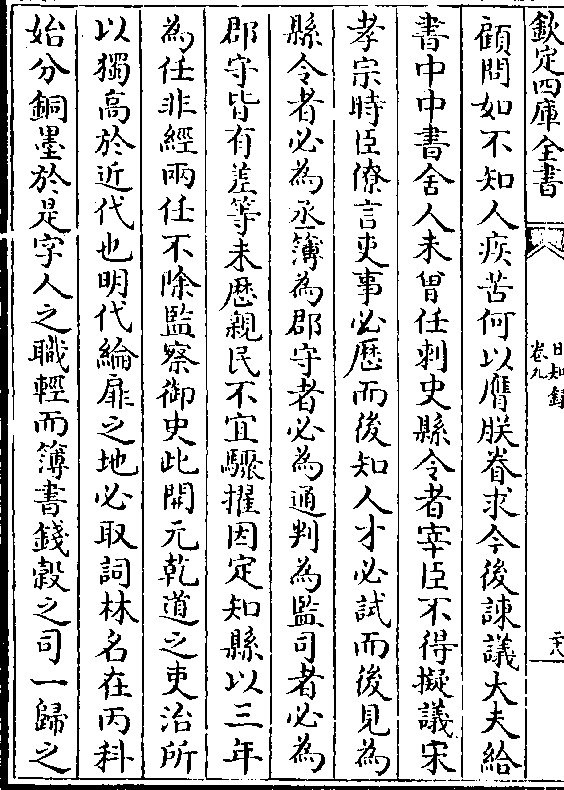 欽定四庫全書
日知錄
卷九
二十八
顧問如不知人疾苦何以膺朕眷求今後諫議大夫給
書中中書舍人未曾任刺史縣令者宰臣不得擬議宋
孝宗時臣僚言吏事必歷而後知人才必試而後見為
縣令者必為丞簿為郡守者必為通判為監司者必為
郡守皆有差等未歷親民不宜驟擢因定知縣以三年
為任非經兩任不除監察御史此開元乾道之吏治所
以獨高於近代也明代綸扉之地必取詞林名在丙科
始分銅墨於是字人之職輕而簿書錢穀之司一歸之